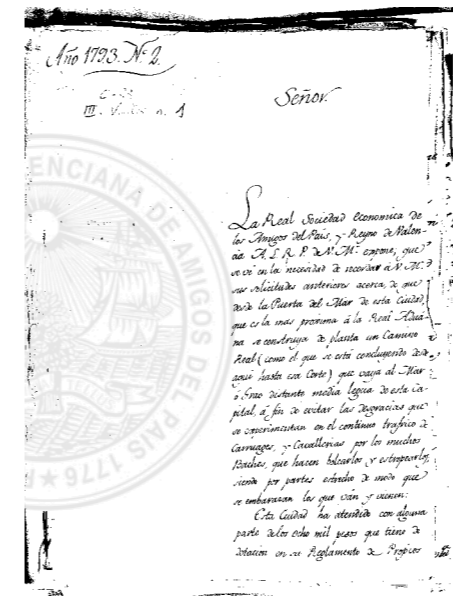 Año 1793. N.º 2.
Señor.
La Real Sociedad Economica de
los Amigos del País, y Reyno de Valen-
cia A. L. R. P. de V. M. expone, que
se vé en la necesidad de recordar á V. M.
sus solicitudes anteriores acerca, de que
desde la Puerta del Mar de esta Ciudad,
que es la mas proxima á la Real Adua-
na se construya de planta un Camino
Real (como el que se está concluyendo desde
aqui hasta esa Corte) que vaya al Mar
ó Grao distante media legua de esta Ca-
pital, á fin de evitar las desgracias que
se experimentan en el continuo trafico de
Carruages, y Cavallerias por los muchos
Baches, que hacen bolcarlos y estropearlos,
siendo por partes estrecho de modo que
se embarazan los que ván y vienen:
Esta Ciudad ha atendido con alguna
parte de los ocho mil pesos que tiene de
dotacion en su Reglamento de Propios